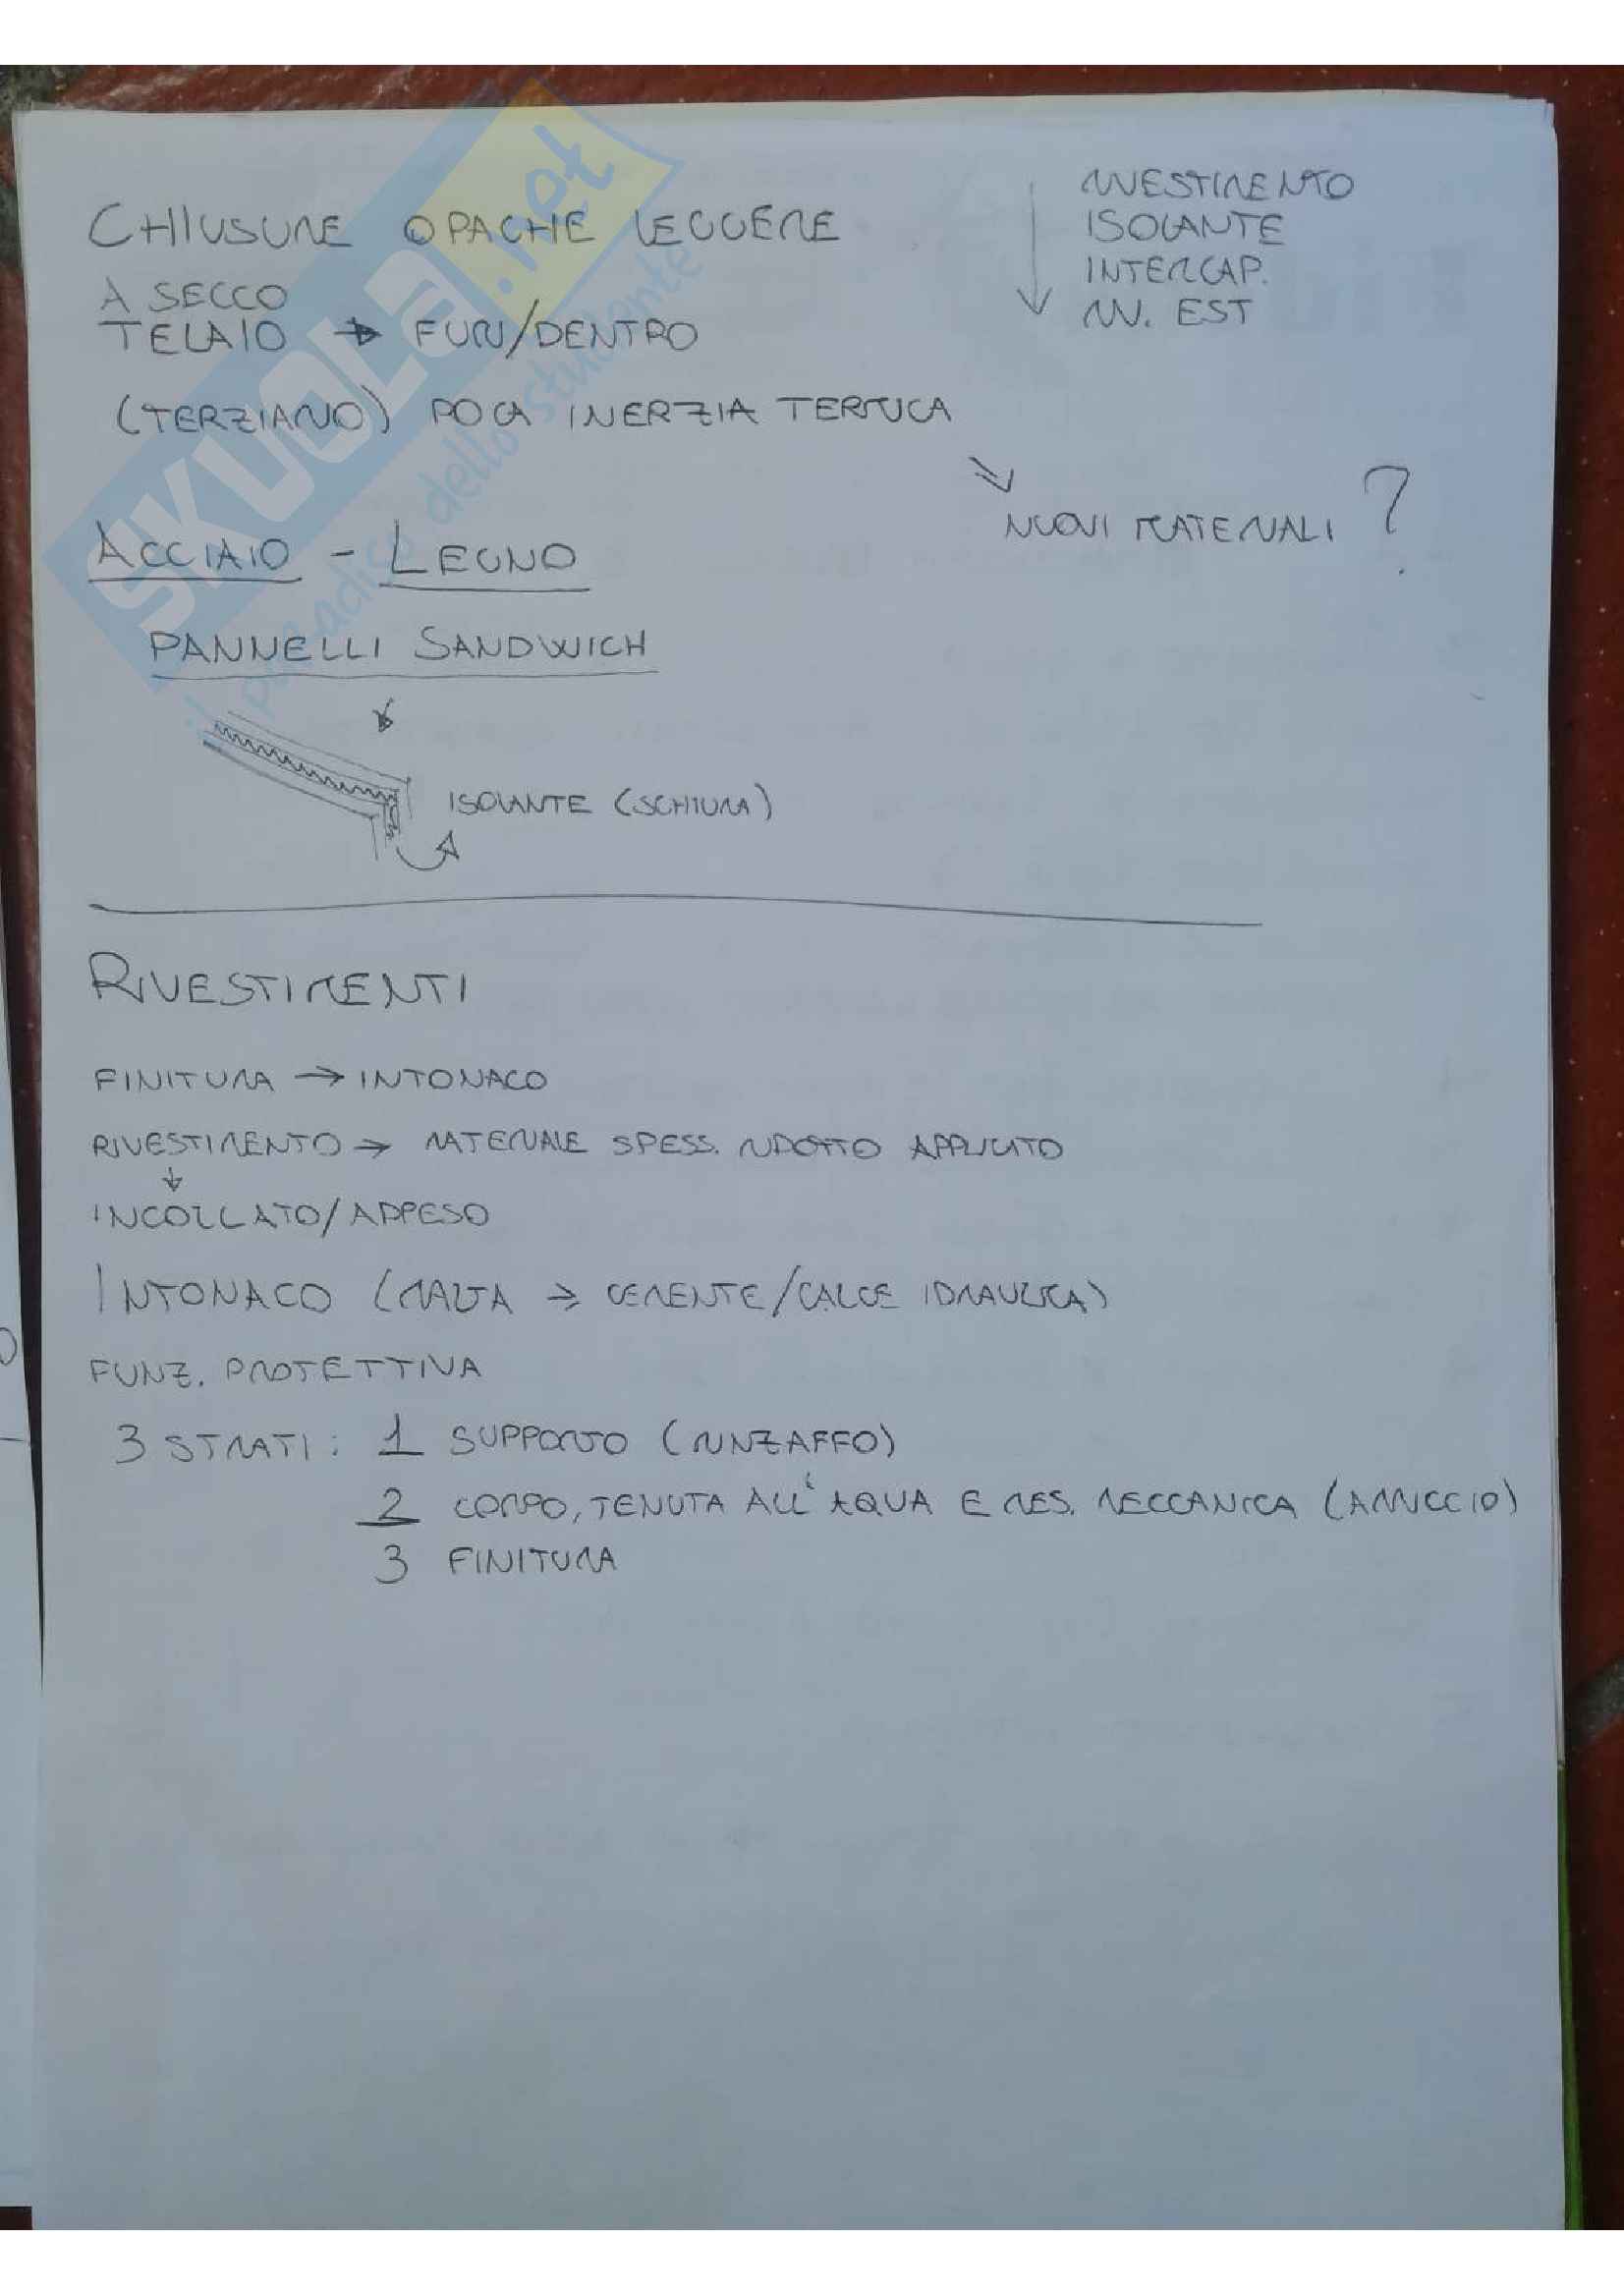 CHIUSURE OPACHE LEGGERE
A SECCO
TELAIO → FUORI/DENTRO
(TERZIARIO) POCA INERZIA TERMICA
RIVESTIMENTO
ISOLANTE
INTERCAP.
RIV. EST
NUOVI MATERIALI ?
ACCIAIO - LEGNO
PANNELLI SANDWICH
ISOLANTE (SCHIUMA)
RIVESTIMENTI
FINITURA → INTONACO
RIVESTIMENTO → MATERIALE SPESS. RIDOTTO APPLICATO
INCOLLATO/APPESO
INTONACO (MALTA → CEMENTE/CALCE IDRAULICA)
FUNZ. PROTETTIVA
3 STRATI: 1 SUPPORTO (RINZAFFO)
2 CORPO, TENUTA ALL'AQUA E RES. MECCANICA (ARRICCIO)
3 FINITURA
SKUOLA.net
il paradiso dello studente